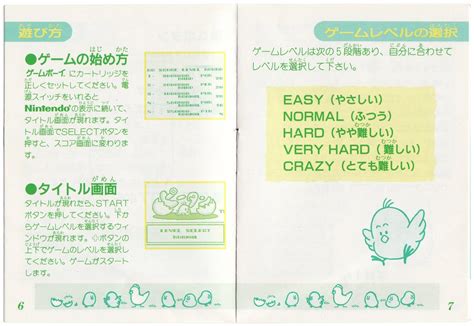 遊び方
●ゲームの始め方
ゲームボーイにカートリッジを
正しくセットしてください。電
源スイッチをいれると
Nintendoの表示に続いて、
タイトル画面が現れます。タイ
トル画面でSELECTボタンを
押すと、スコア画面に変わりま
す。
●タイトル画面
タイトルが現れたら、START
ボタンを押してください。下か
らゲームレベルを選択するウィ
ンドウが現れます。◇ボタンの
上下でゲームのレベルを選択し
てください。ゲームがスタート
します。
LEVEL SELECT
6
ゲームレベルの選択
ゲームレベルは次の5段階あり、自分に合わせて
レベルを選択して下さい。
EASY (やさしい)
NORMAL (ふつう)
HARD (やや難しい)
VERY HARD (難しい)
CRAZY (とても難しい)
7